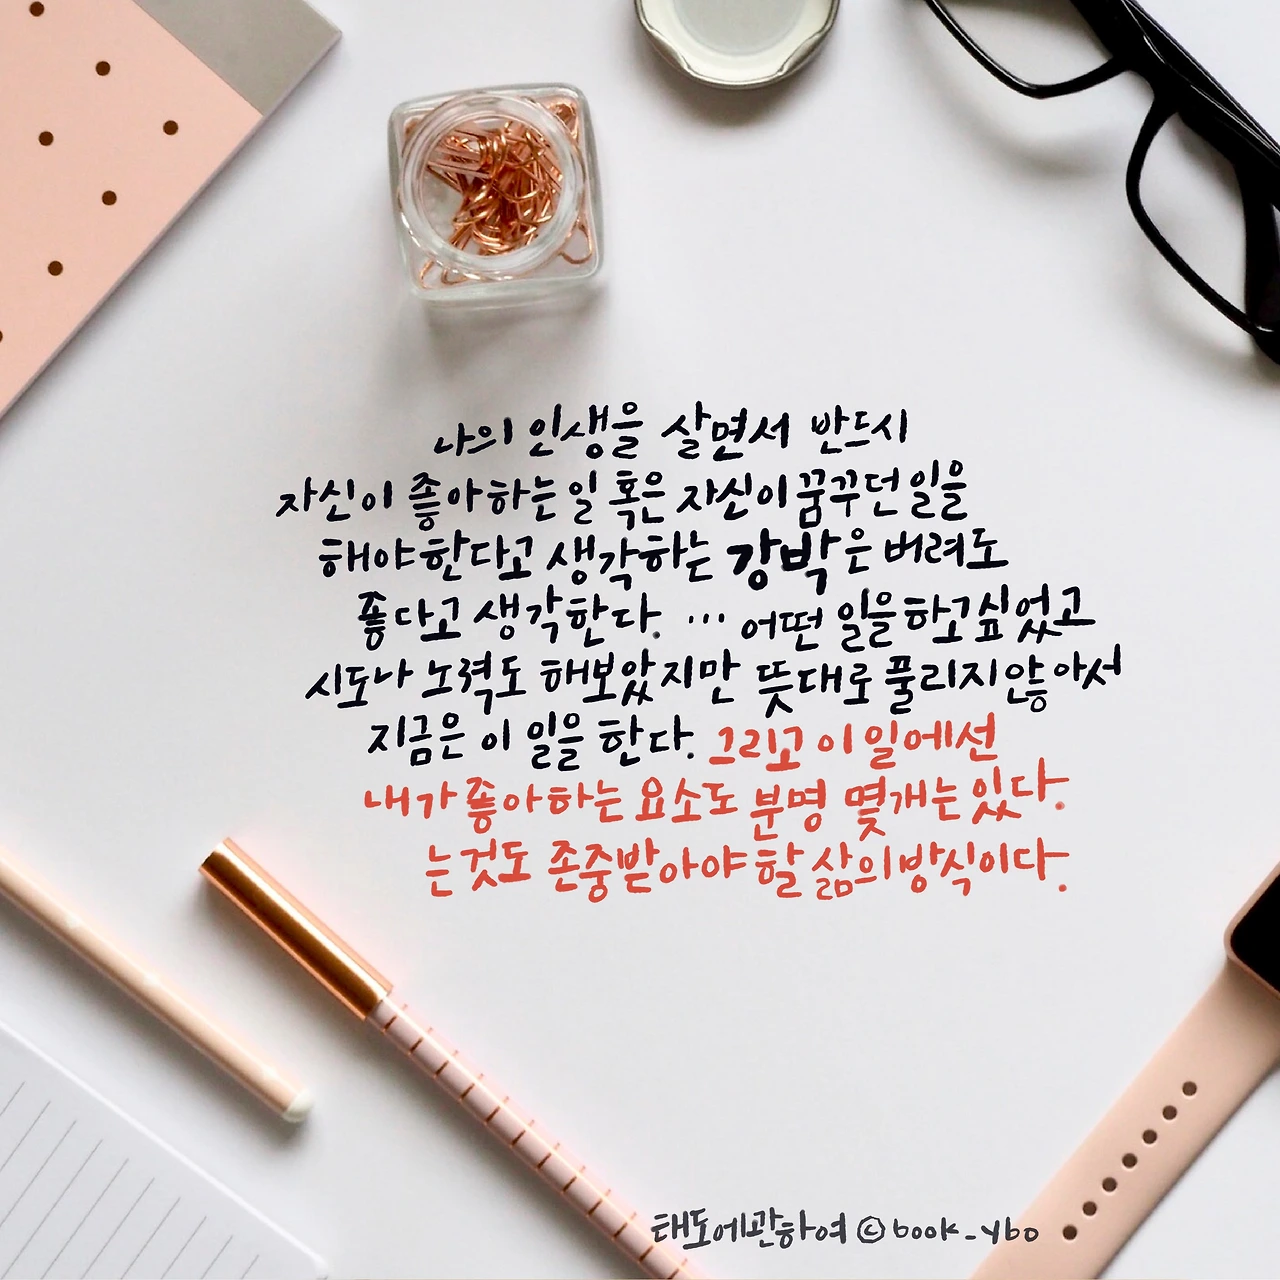 나의 인생을 살면서 반드시
자신이 좋아하는 일 혹은 자신이 꿈꾸던 일을
해야한다고 생각하는 강박은 버려도
좋다고 생각한다. … 어떤 일을 하고싶었고
시도나 노력도 해보았지만 뜻대로 풀리지않아서
지금은 이 일을 한다. 그리고 이 일에선
내가 좋아하는 요소도 분명 몇개는 있다.
는것도 존중받아야 할 삶의 방식이다.
태도에관하여 ©book_ybo